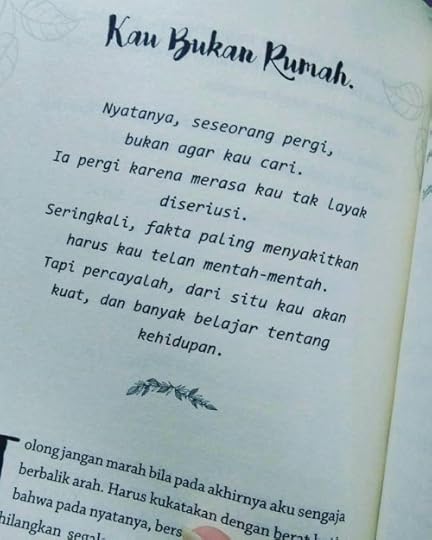 Kau Bukan Rumah.
Nyatanya, seseorang pergi,
bukan agar kau cari.
Ia pergi karena merasa kau tak layak
diseriusi.
Seringkali, fakta paling menyakitkan
harus kau telan mentah-mentah.
Tapi percayalah, dari situ kau akan
kuat, dan banyak belajar tentang
kehidupan.
Tolong jangan marah bila pada akhirnya aku sengaja
berbalik arah. Harus kukatakan dengan berat
bahwa pada nyatanya,